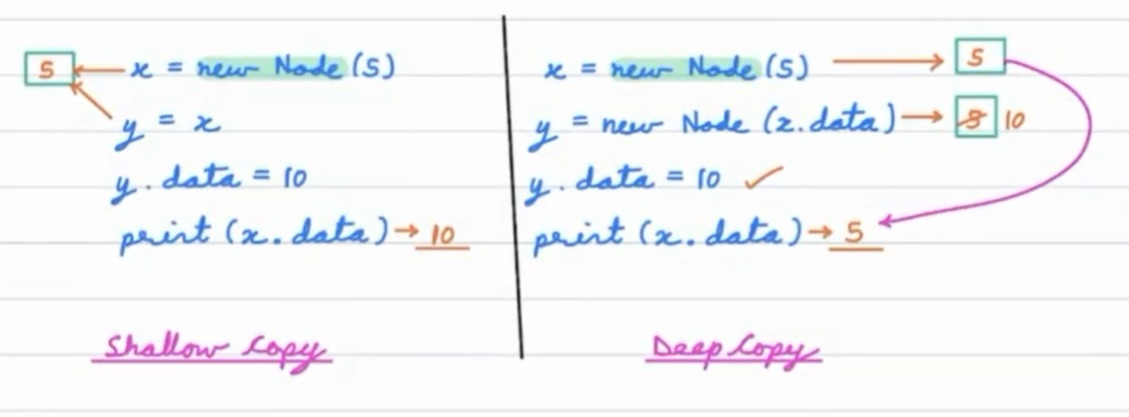 5 ← x = new Node (5)
y = x
y.data = 10
print (x.data) → 10
Shallow Copy
x = new Node (5) → 5
y = new Node (x.data) → 5 10
y.data = 10 ✓
print (x.data) → 5
Deep Copy